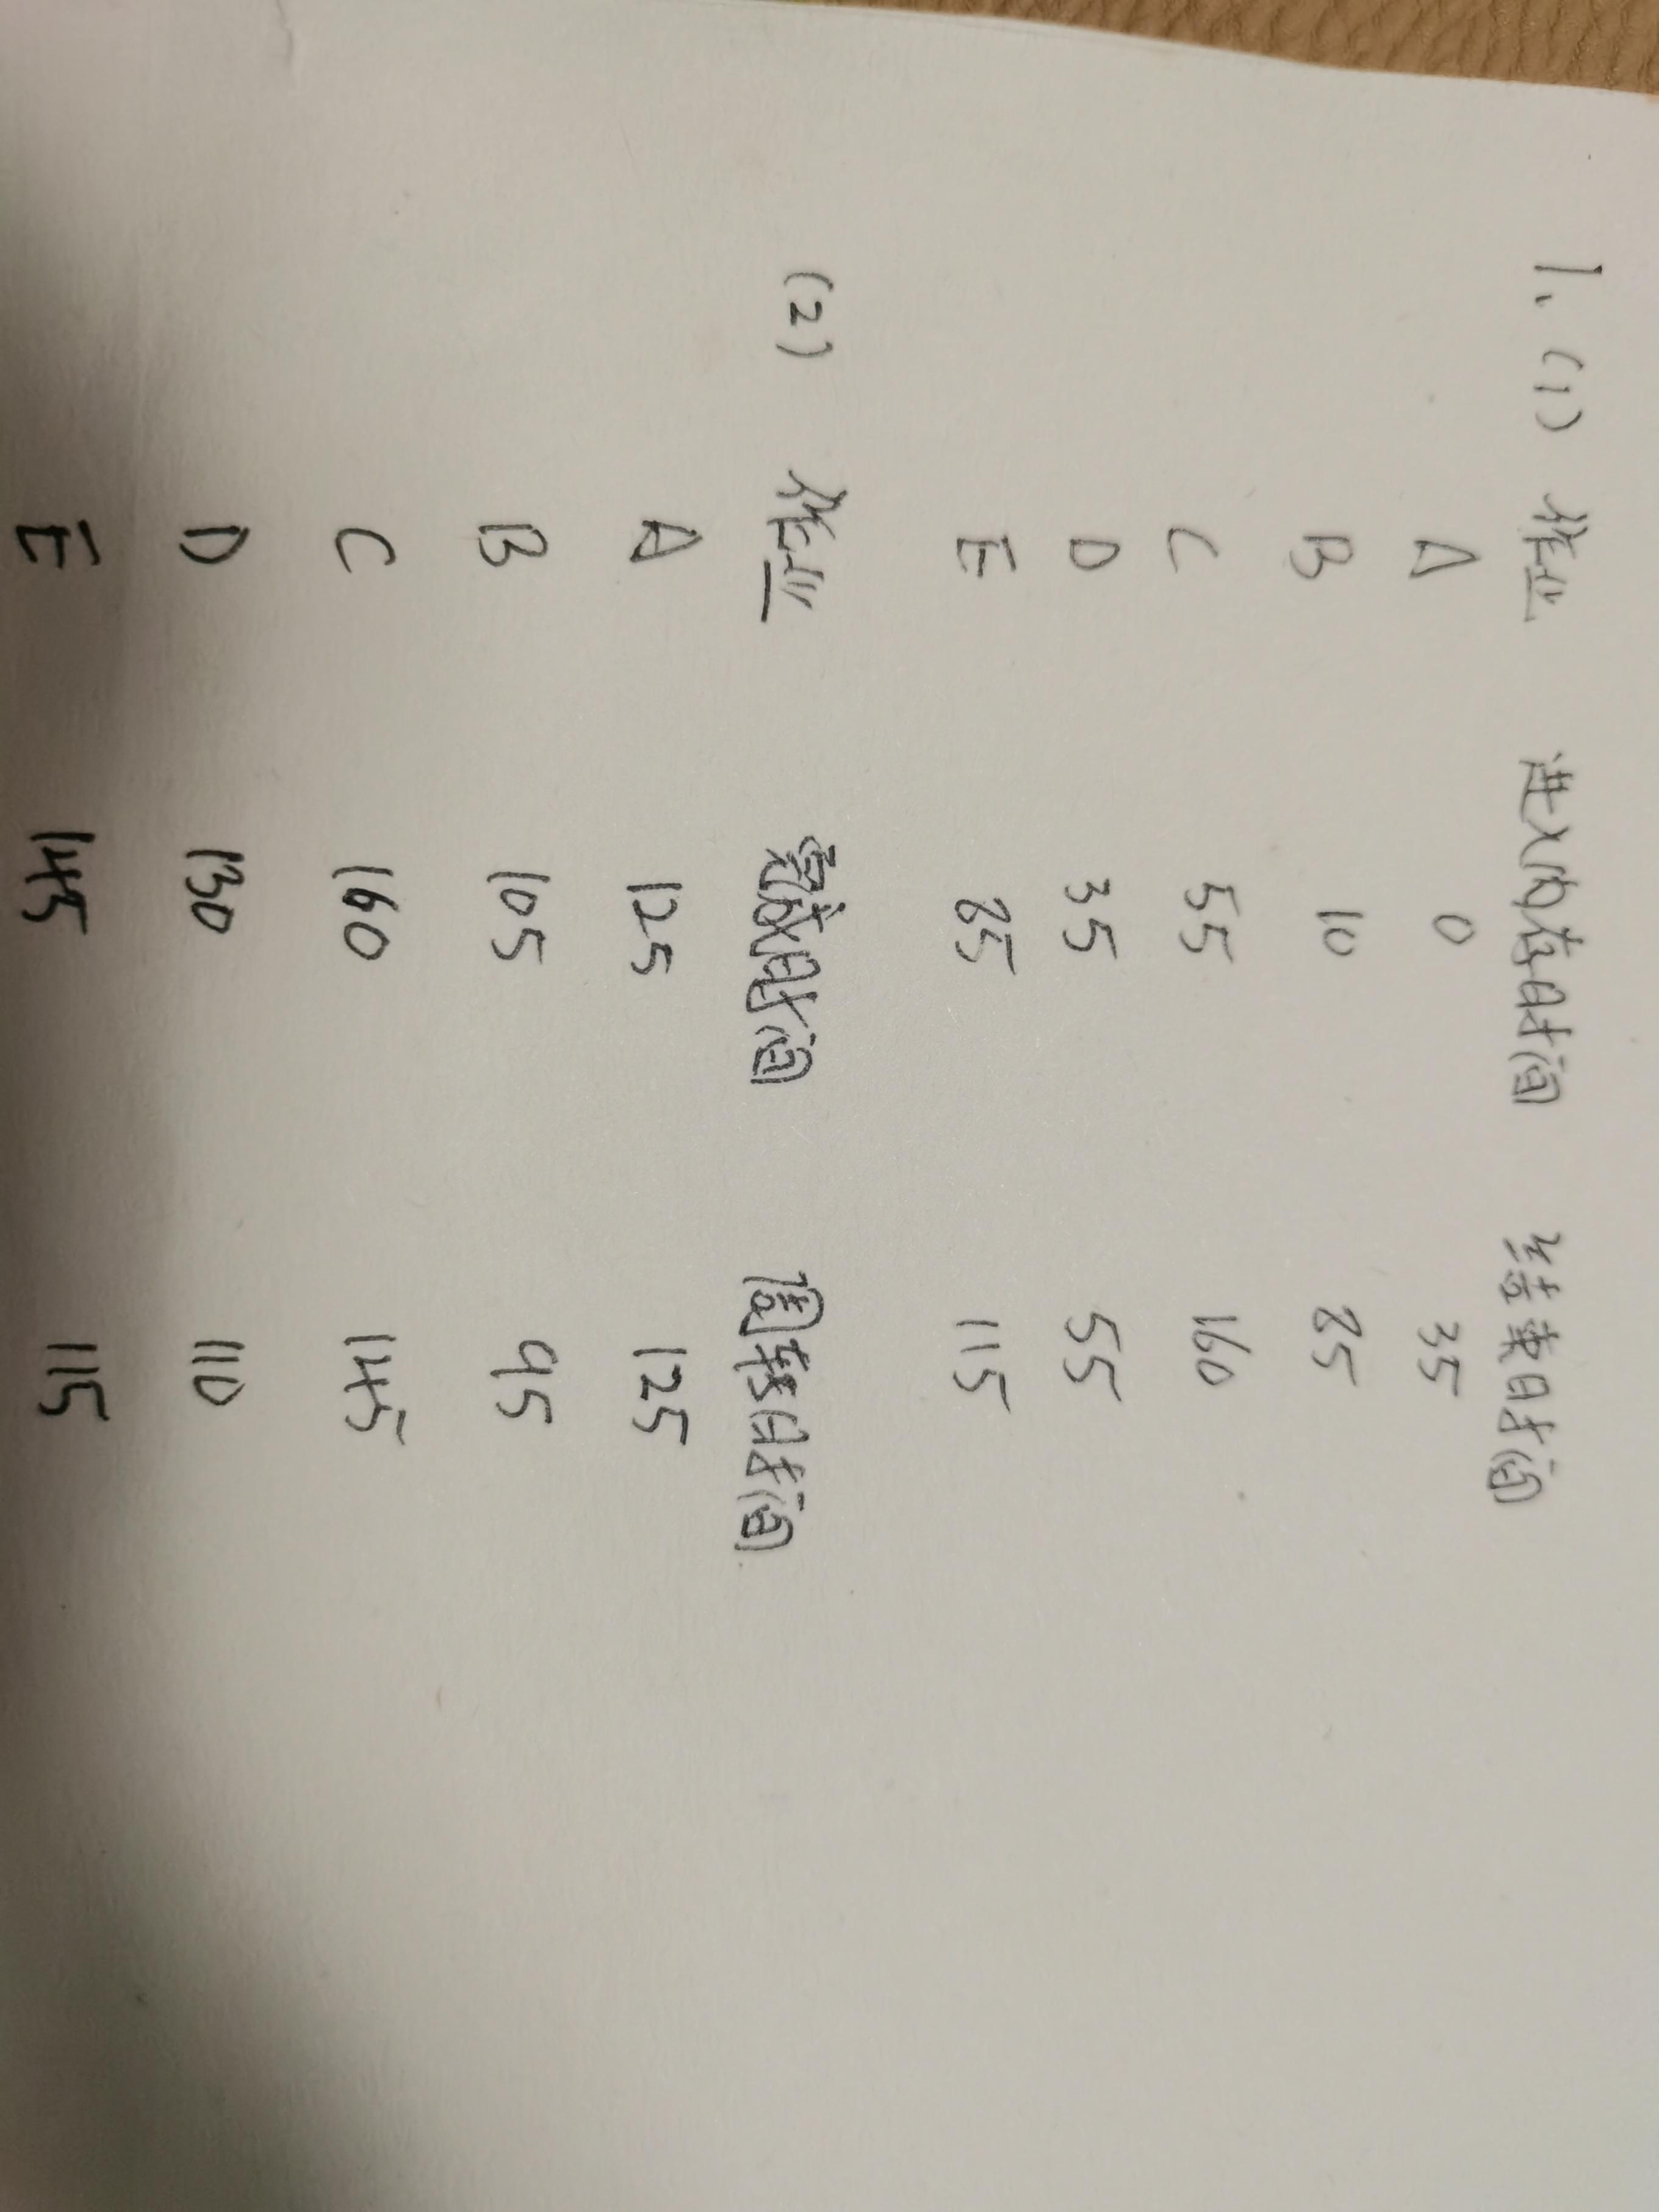 1、(1) 作业 进入内存时间 结束时间
A 0 35
B 10 85
C 55 160
D 35 55
E 85 115
(2) 作业 完成时间 周转时间
A 125 125
B 105 95
C 160 145
D 130 110
E 145 115